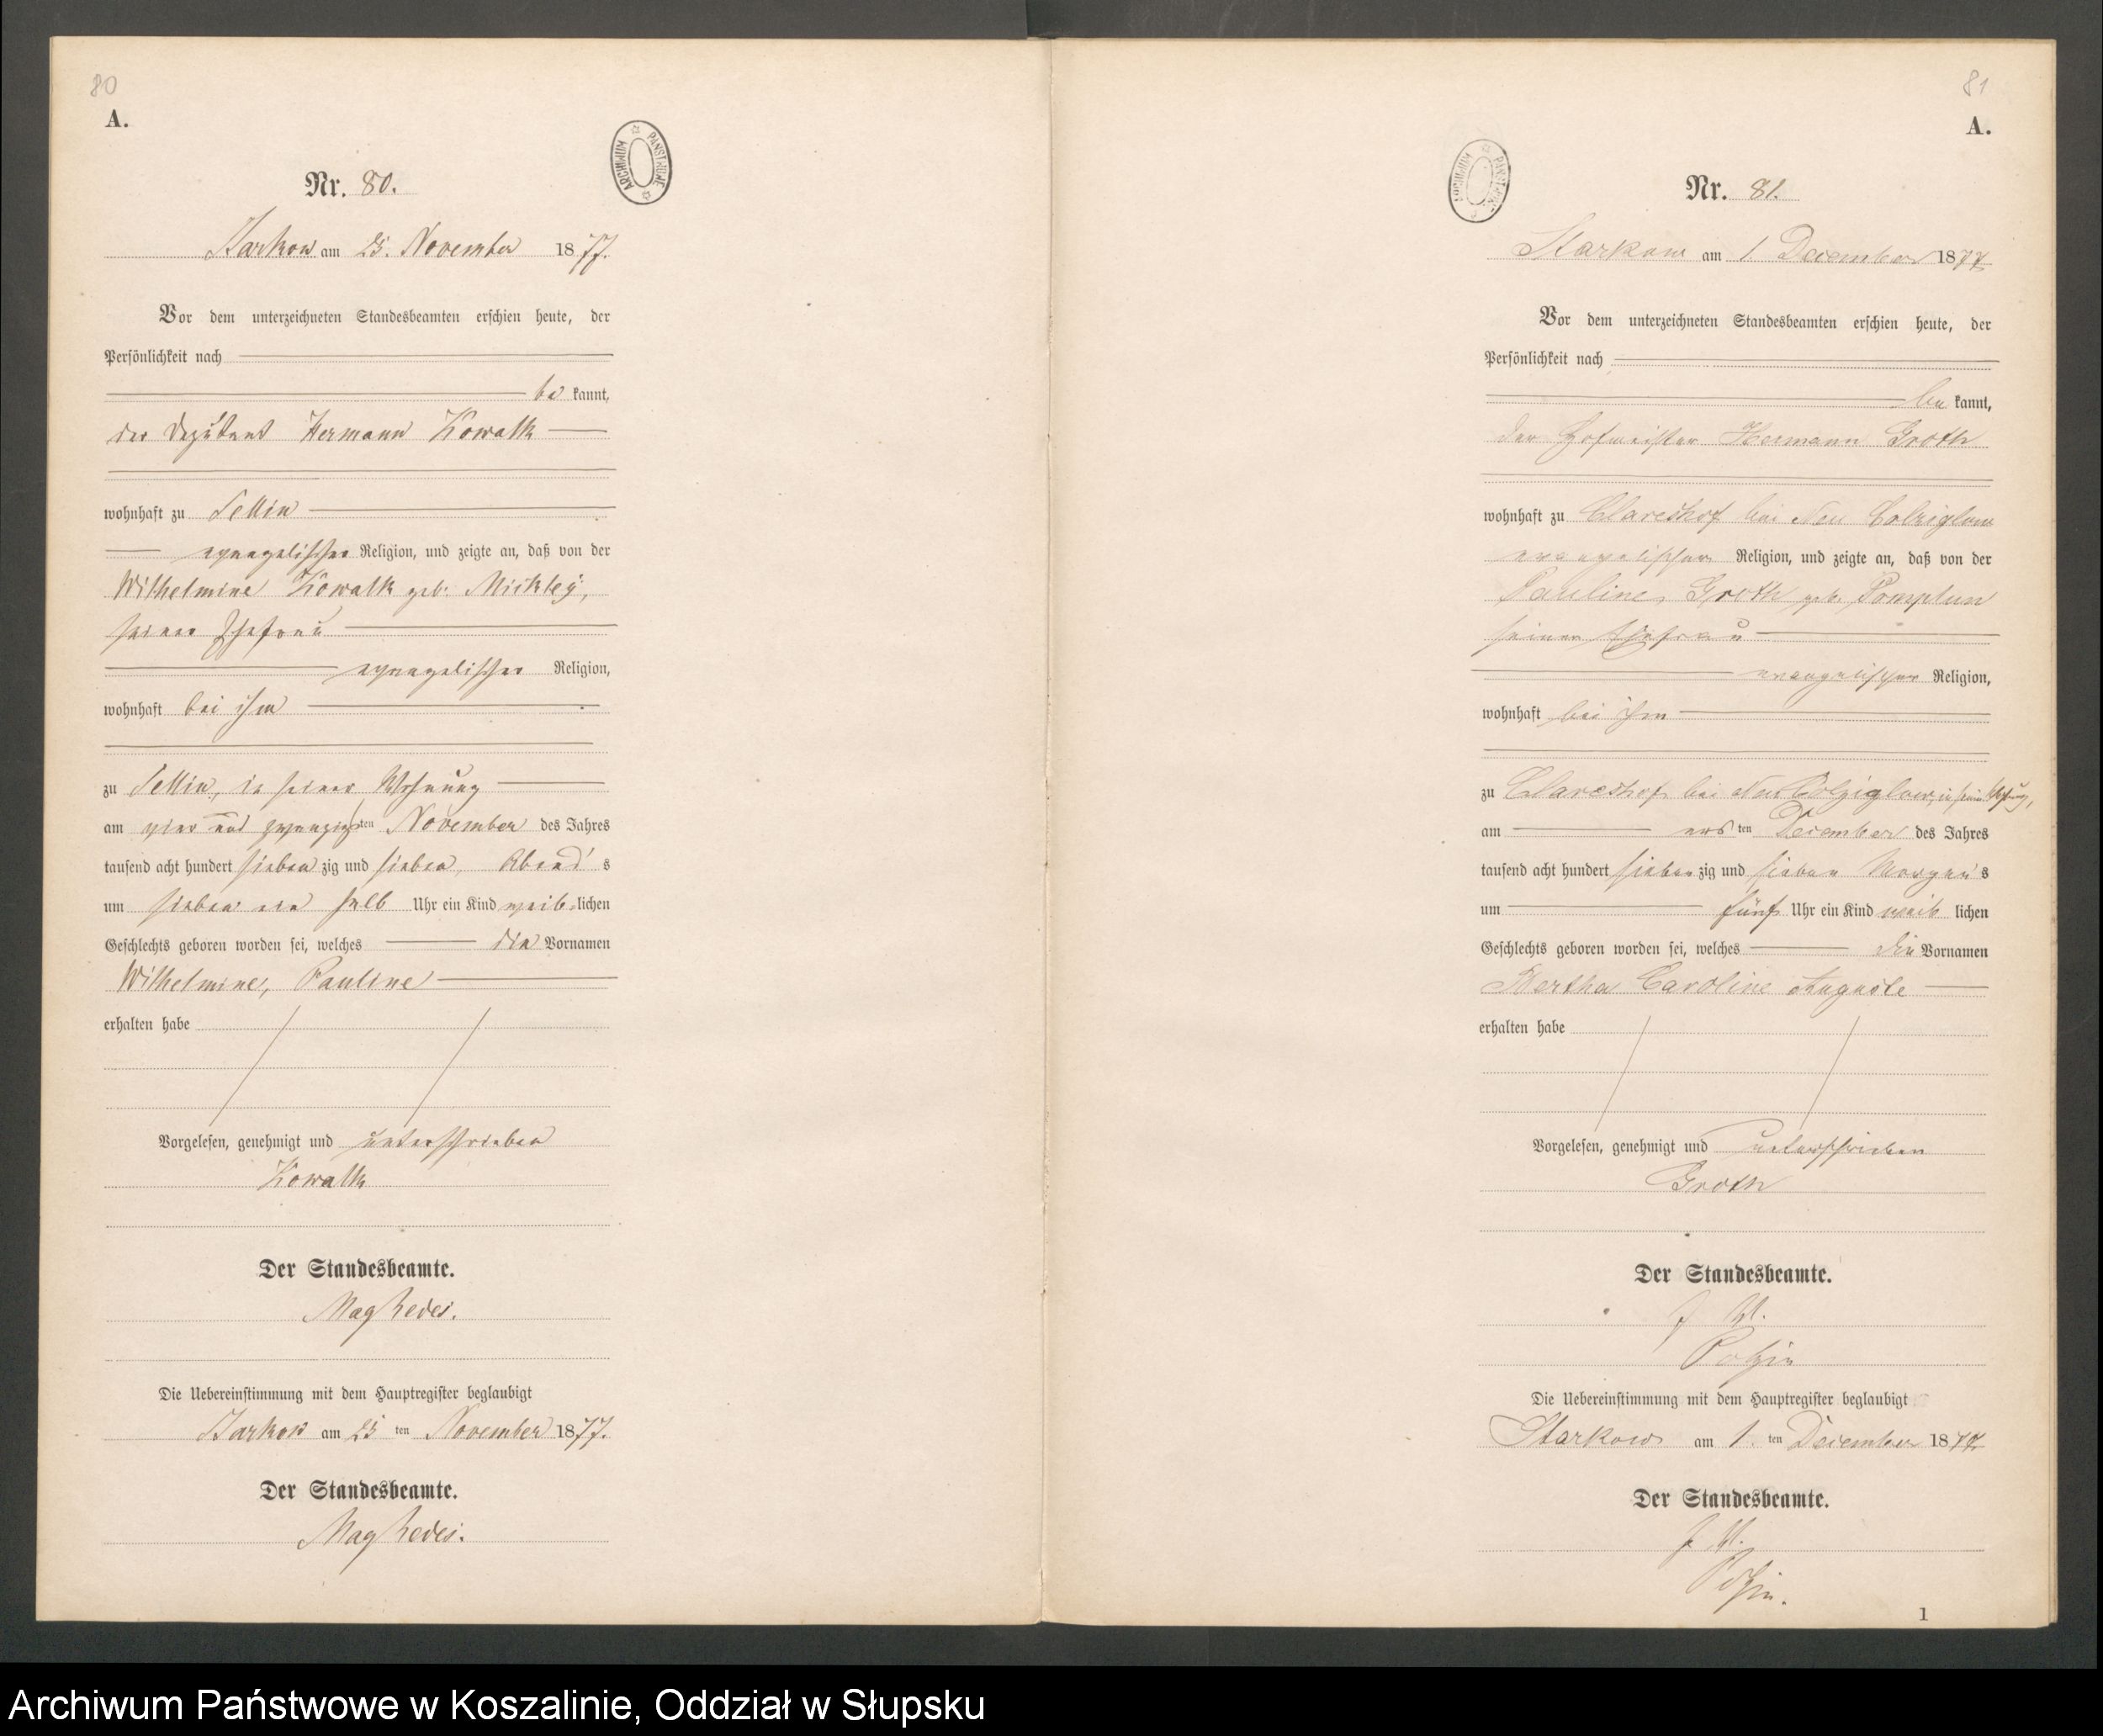 80
A.
ARCHIWUM PAŃSTWOWE
Nr. 80.
Starkow am 25. November 1877.
Vor dem unterzeichneten Standesbeamten erschien heute, der
Persönlichkeit nach
be kannt,
der Deputant Hermann Kowalk
wohnhaft zu Sellin
evangelischer Religion, und zeigte an, daß von der
Wilhelmine Kowalk geb. Mickley,
seiner Ehefrau
evangelischer Religion,
wohnhaft bei ihm
zu Sellin, in seiner Wohnung
am vier und zwanzigsten November des Jahres
tausend acht hundert sieben zig und sieben, Abend's
um sieben ein halb Uhr ein Kind weib lichen
Geschlechts geboren worden sei, welches die Vornamen
Wilhelmine, Pauline
erhalten habe
Vorgelesen, genehmigt und unterschrieben
Kowalk
Der Standesbeamte.
Die Uebereinstimmung mit dem Hauptregister beglaubigt
Starkow am 25 ten November 1877.
Der Standesbeamte.
81
A.
ARCHIWUM PAŃSTWOWE
Nr. 81.
Starkow am 1 December 1877
Vor dem unterzeichneten Standesbeamten erschien heute, der
Persönlichkeit nach
be kannt,
der Hofmeister Hermann Groth
wohnhaft zu Clareshof bei Neu Kolziglow
evangelischer Religion, und zeigte an, daß von der
Pauline Groth geb. Pomplun
seiner Ehefrau
evangelischer Religion,
wohnhaft bei ihm
zu Clareshof bei Neu Colziglow, in seiner Wohnung,
am ers ten December des Jahres
tausend acht hundert sieben zig und sieben Morgen's
um fünf Uhr ein Kind weib lichen
Geschlechts geboren worden sei, welches die Vornamen
Bertha Caroline Auguste
erhalten habe
Vorgelesen, genehmigt und unterschrieben
Groth
Der Standesbeamte.
Die Uebereinstimmung mit dem Hauptregister beglaubigt
Starkow am 1. ten December 1877
Der Standesbeamte.
1
Archiwum Państwowe w Koszalinie, Oddział w Słupsku